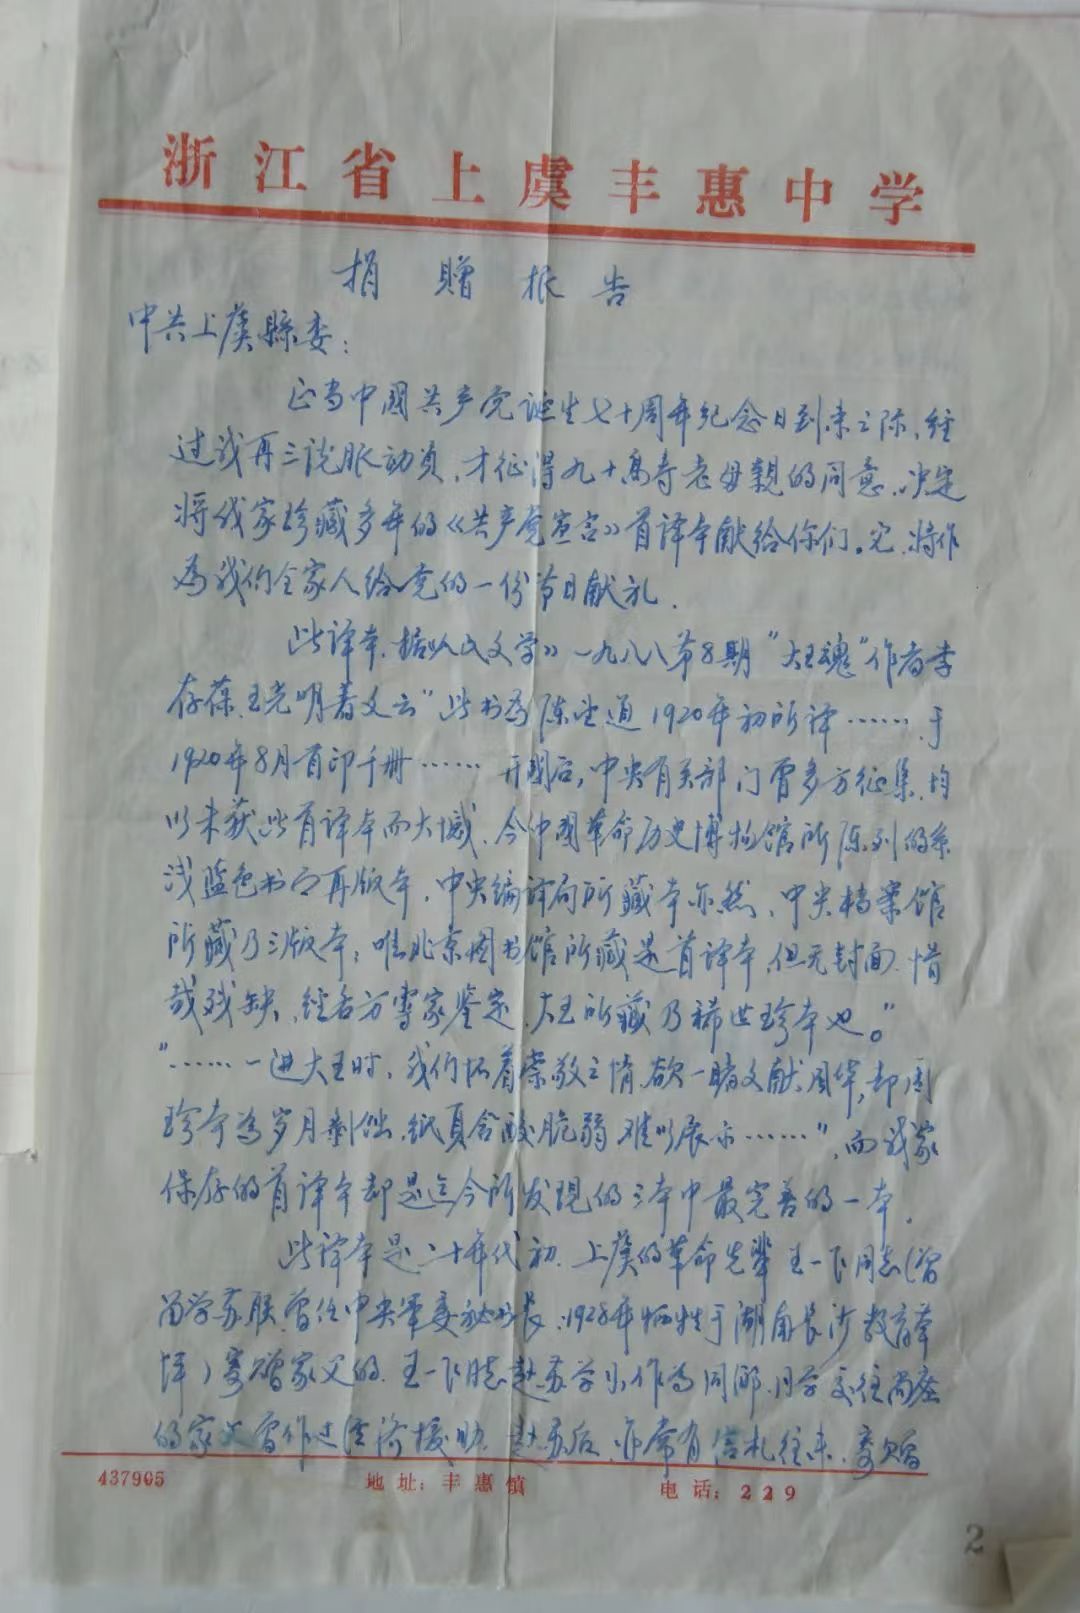 浙江省上虞丰惠中学
捐赠报告
中共上虞縣委：
正当中國共产党诞生七十周年纪念日到来之际，经
过我再三说服动员，才征得九十高寿老母親的同意，决定
将我家珍藏多年的《共产党宣言》首译本献给你们。它，将作
为我们全家人给党的一份节日献礼．
此译本，据《人民文学》一九八八第8期“大王魂”作者李
存葆、王光明着文云“此书为陈望道1920年初所译……于
1920年8月首印千册……开國后，中央有关部门曾多方征集，均
以未获此首译本而大憾．今中國革命历史博物馆所陈列的系
浅蓝色书面再版本，中央编译局所藏本亦然，中央档案馆
所藏乃三版本；唯北京图书馆所藏是首译本，但无封面，惜
哉残缺，经各方專家鉴定，大王所藏乃稀世珍本也。”
“……一进大王时，我们怀着崇敬之情，欲一睹文献風华，却因
珍本为岁月剥蚀，纸頁含酸脆弱难以展示……”，而我家
保存的首译本却是迄今所发現的三本中最完善的一本．
此译本是二十年代初，上虞的革命先辈王一飞同志（曾
留学苏联，曾任中央军委秘书长，1928年牺牲于湖南长沙教育
坪）寄赠家父的．王一飞同志赴苏学习，作为同鄉、同学交往
的家父曾作过经济援助．赴苏后，亦常有信札往来，寄赠
437905 地址：丰惠镇 电话：229
2